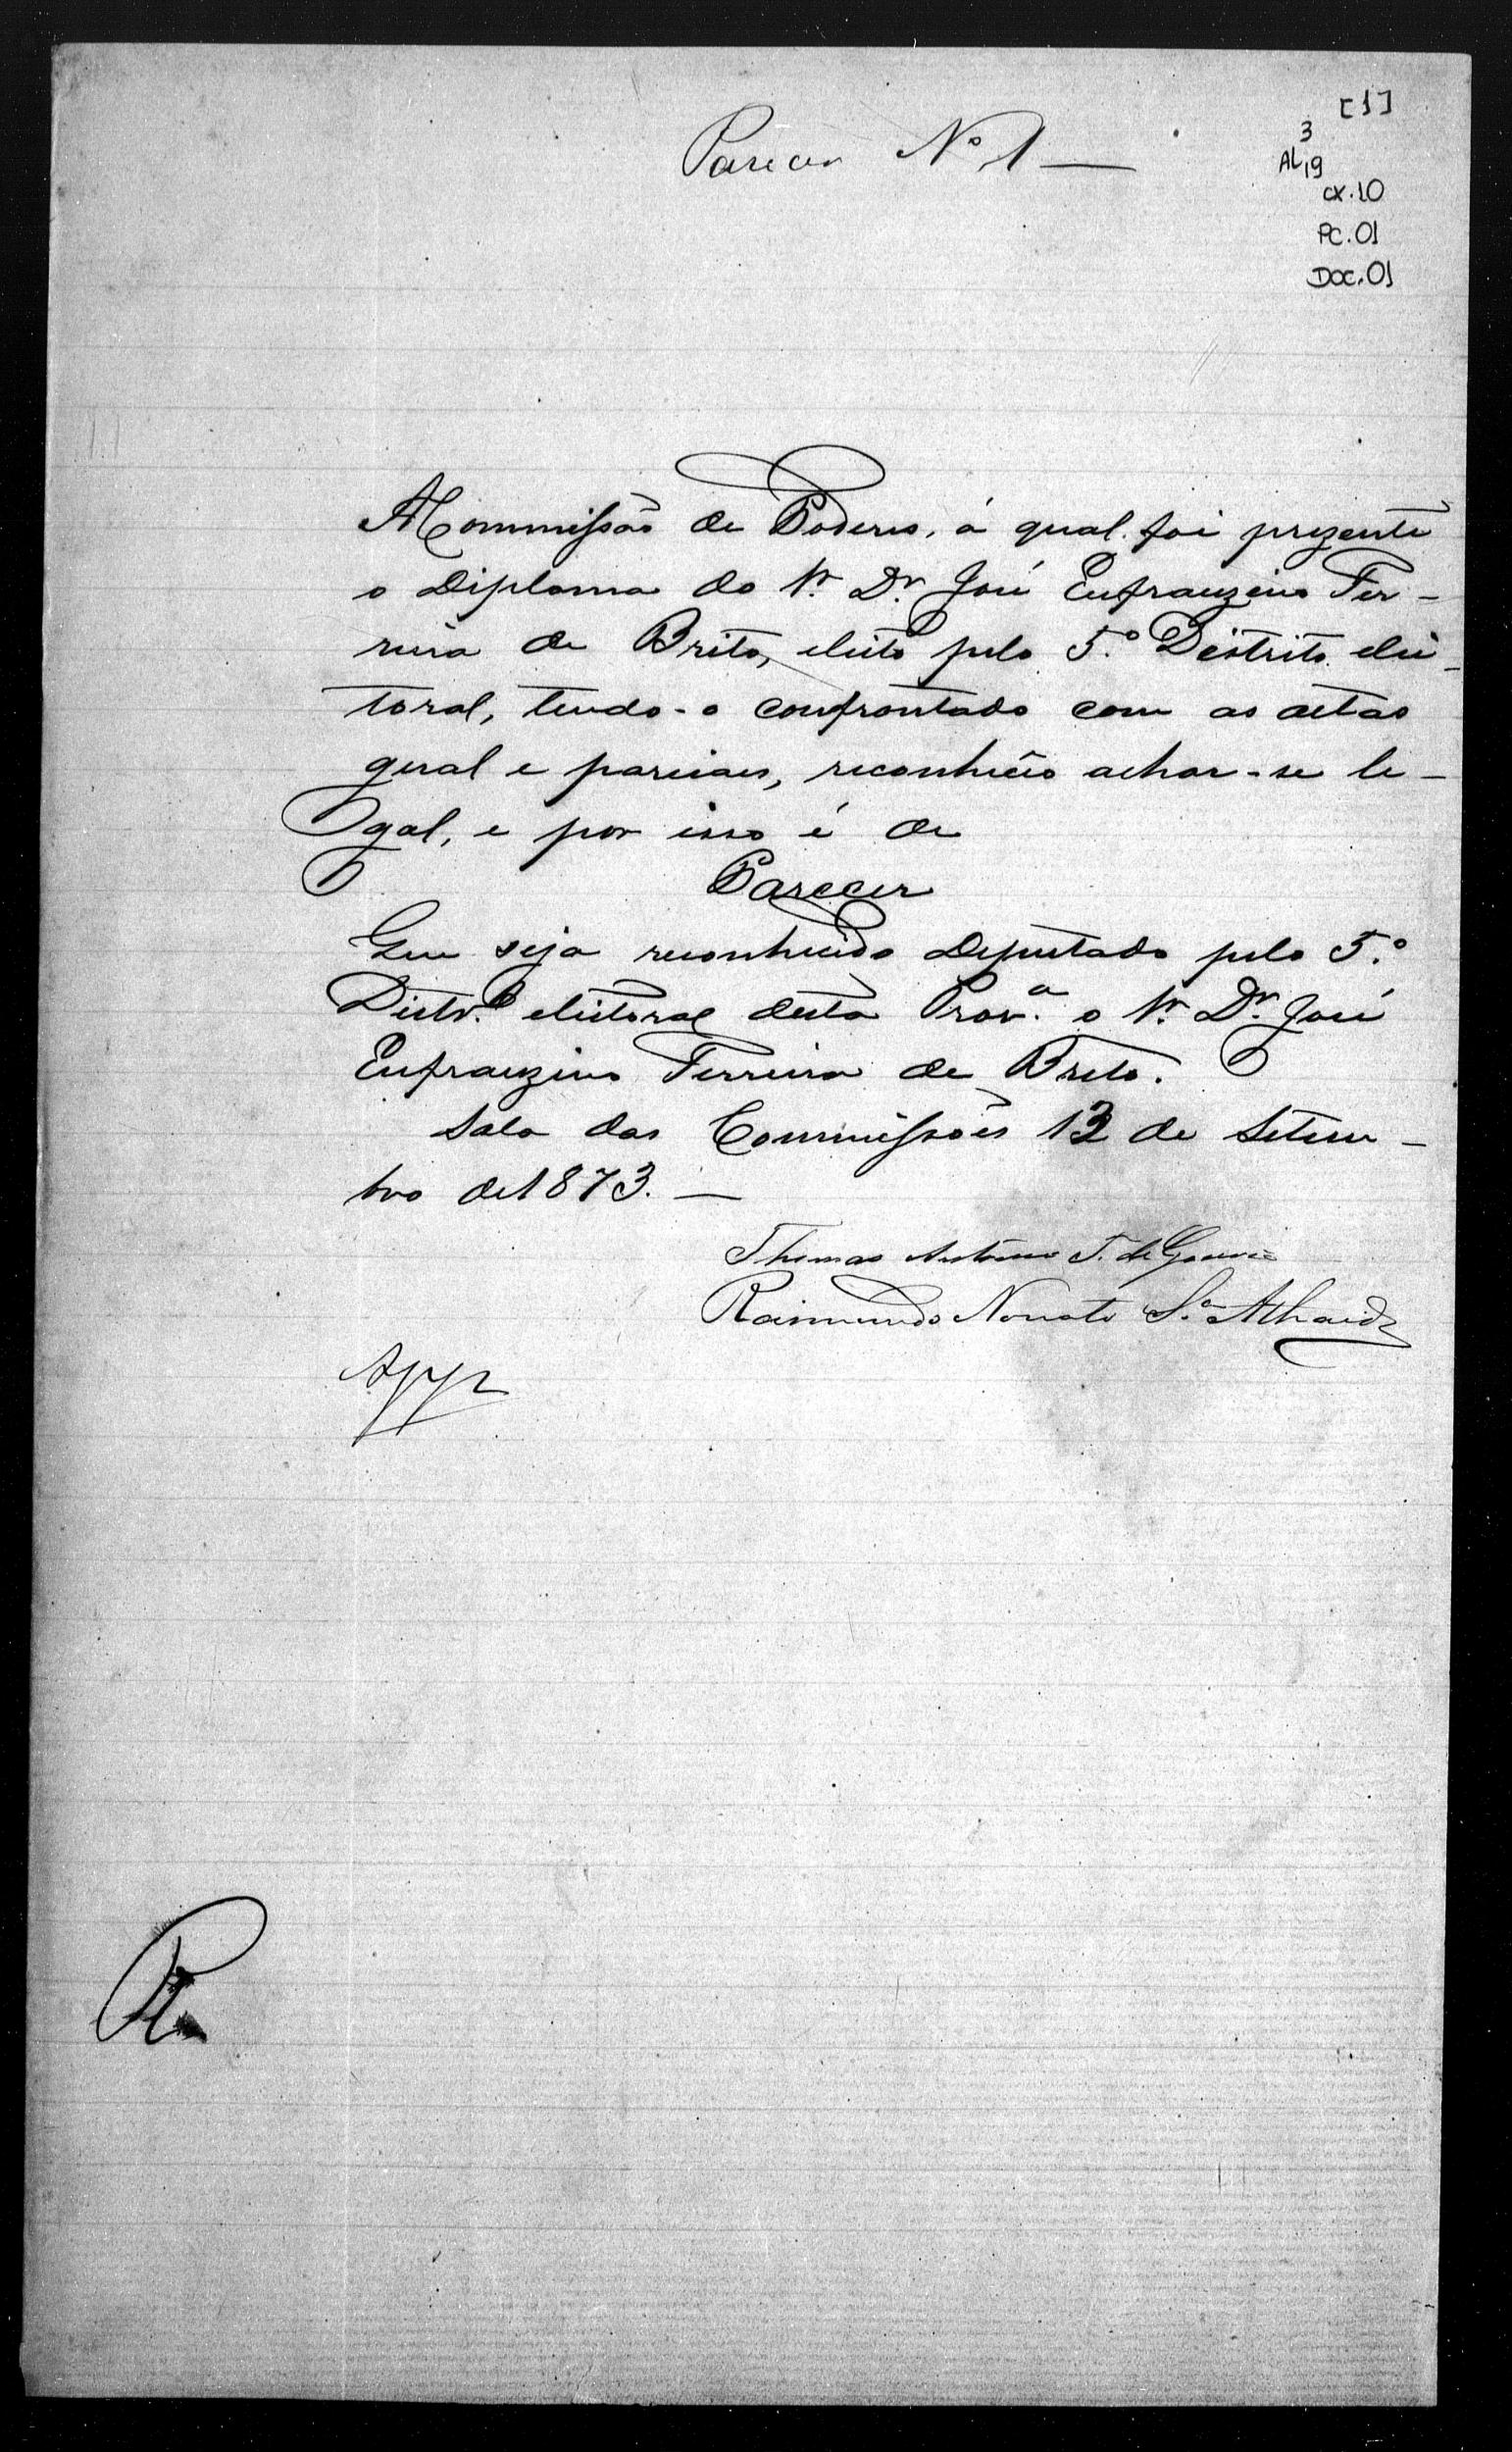 Parecer Nº 1 —
[1]
3
AL19
CX.10
PC.01
DOC.01
A Commissão de Poderes, á qual foi prezente
o Diploma do Sr. Dr. José Eufrauzino Fer-
reira de Brito, eleito pelo 5.º Distrito elei-
toral, tendo-o confrontado com as actas
geral e parciaes, reconheceo achar-se le-
gal, e por isso é de
Parecer
Que seja reconhecido Deputado pelo 5.º
Distr.º eleitoral desta Prov.ª o Sr. Dr. José
Eufrauzino Ferreira de Brito.
Sala das Commissões 13 de Setem-
bro de 1873. —
Thomas Antonio T. de Gouveia
Raimundo Nonato S.ª Athaide
App